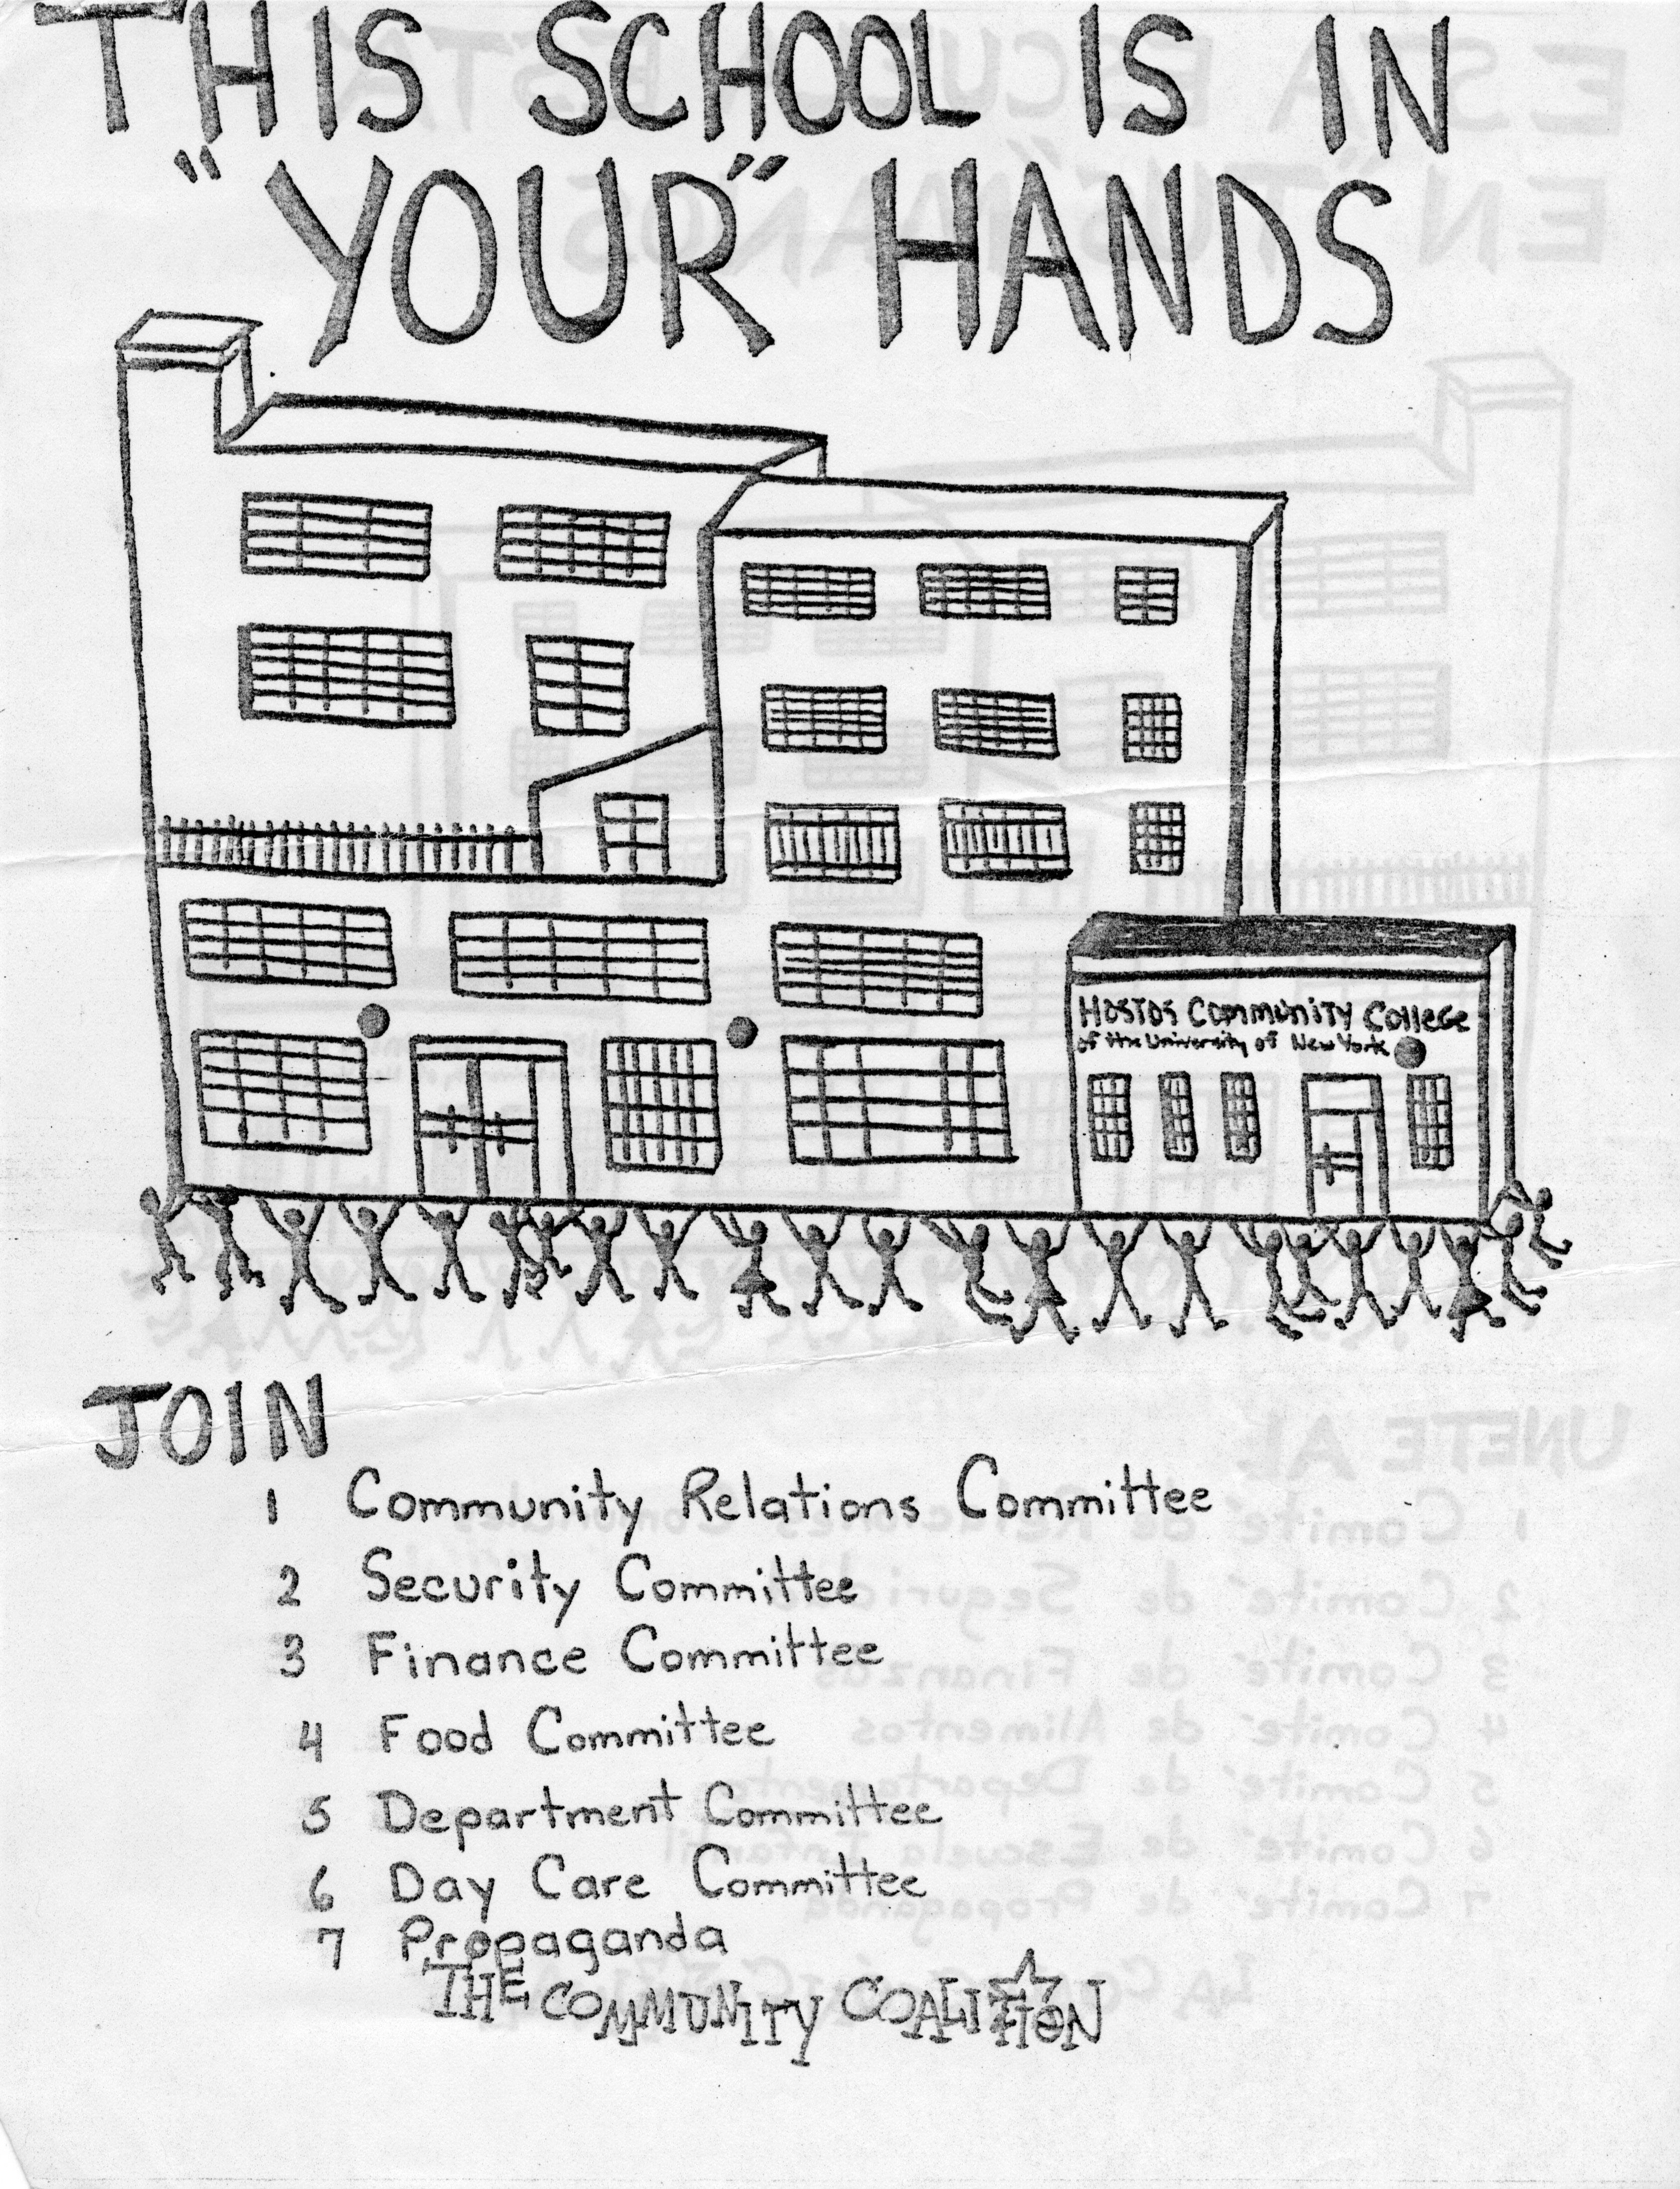 THIS SCHOOL IS IN
"YOUR" HANDS
HOSTOS COMMUNITY COllEGE
of the University of New York
JOIN
1 Community Relations Committee
2 Security Committee
3 Finance Committee
4 Food Committee
5 Department Committee
6 Day Care Committee
7 Propaganda
THE COMMUNITY COALITION